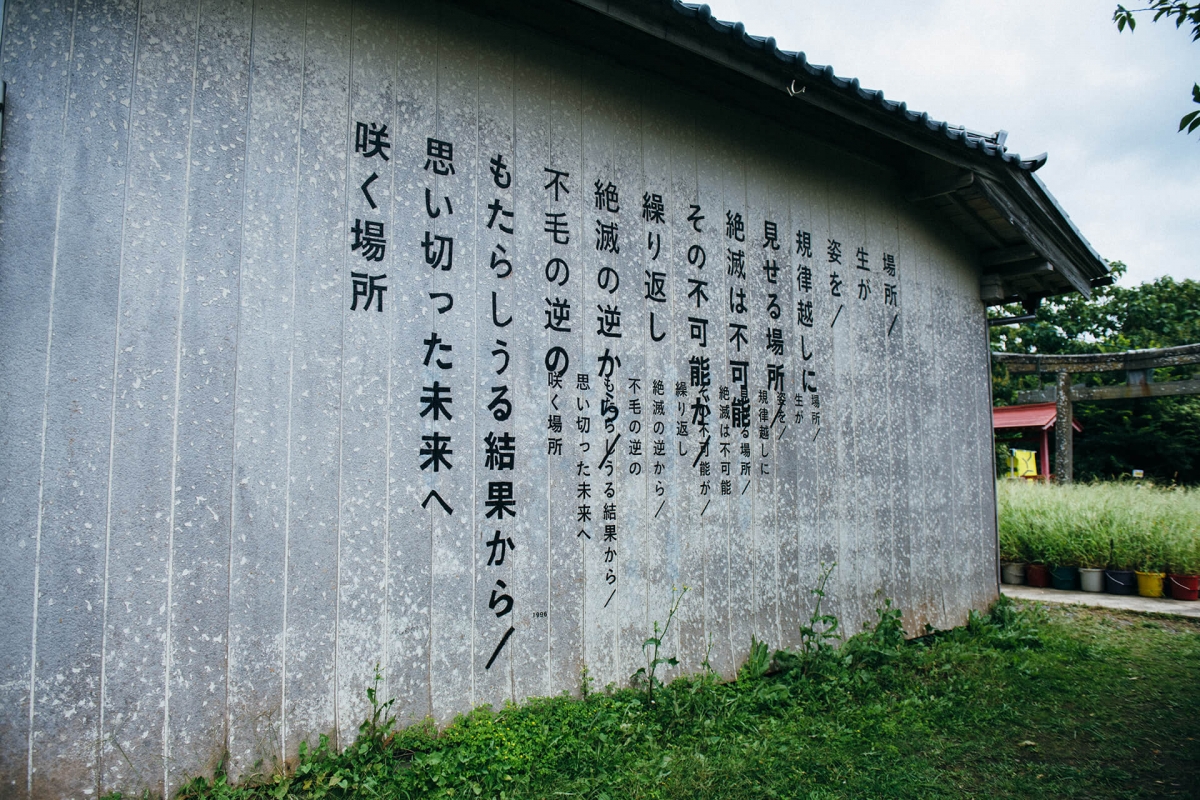 場所／
生が
姿を／
規律越しに
見せる場所
絶滅は不可能
その不可能が／
繰り返し
絶滅の逆から／
不毛の逆の
もたらしうる結果から／
思い切った未来へ
咲く場所
場所／
生が
姿を／
規律越しに
見せる場所／
絶滅は不可能
その不可能が／
繰り返し
絶滅の逆から／
不毛の逆の
もたらしうる結果から／
思い切った未来へ
咲く場所
1996